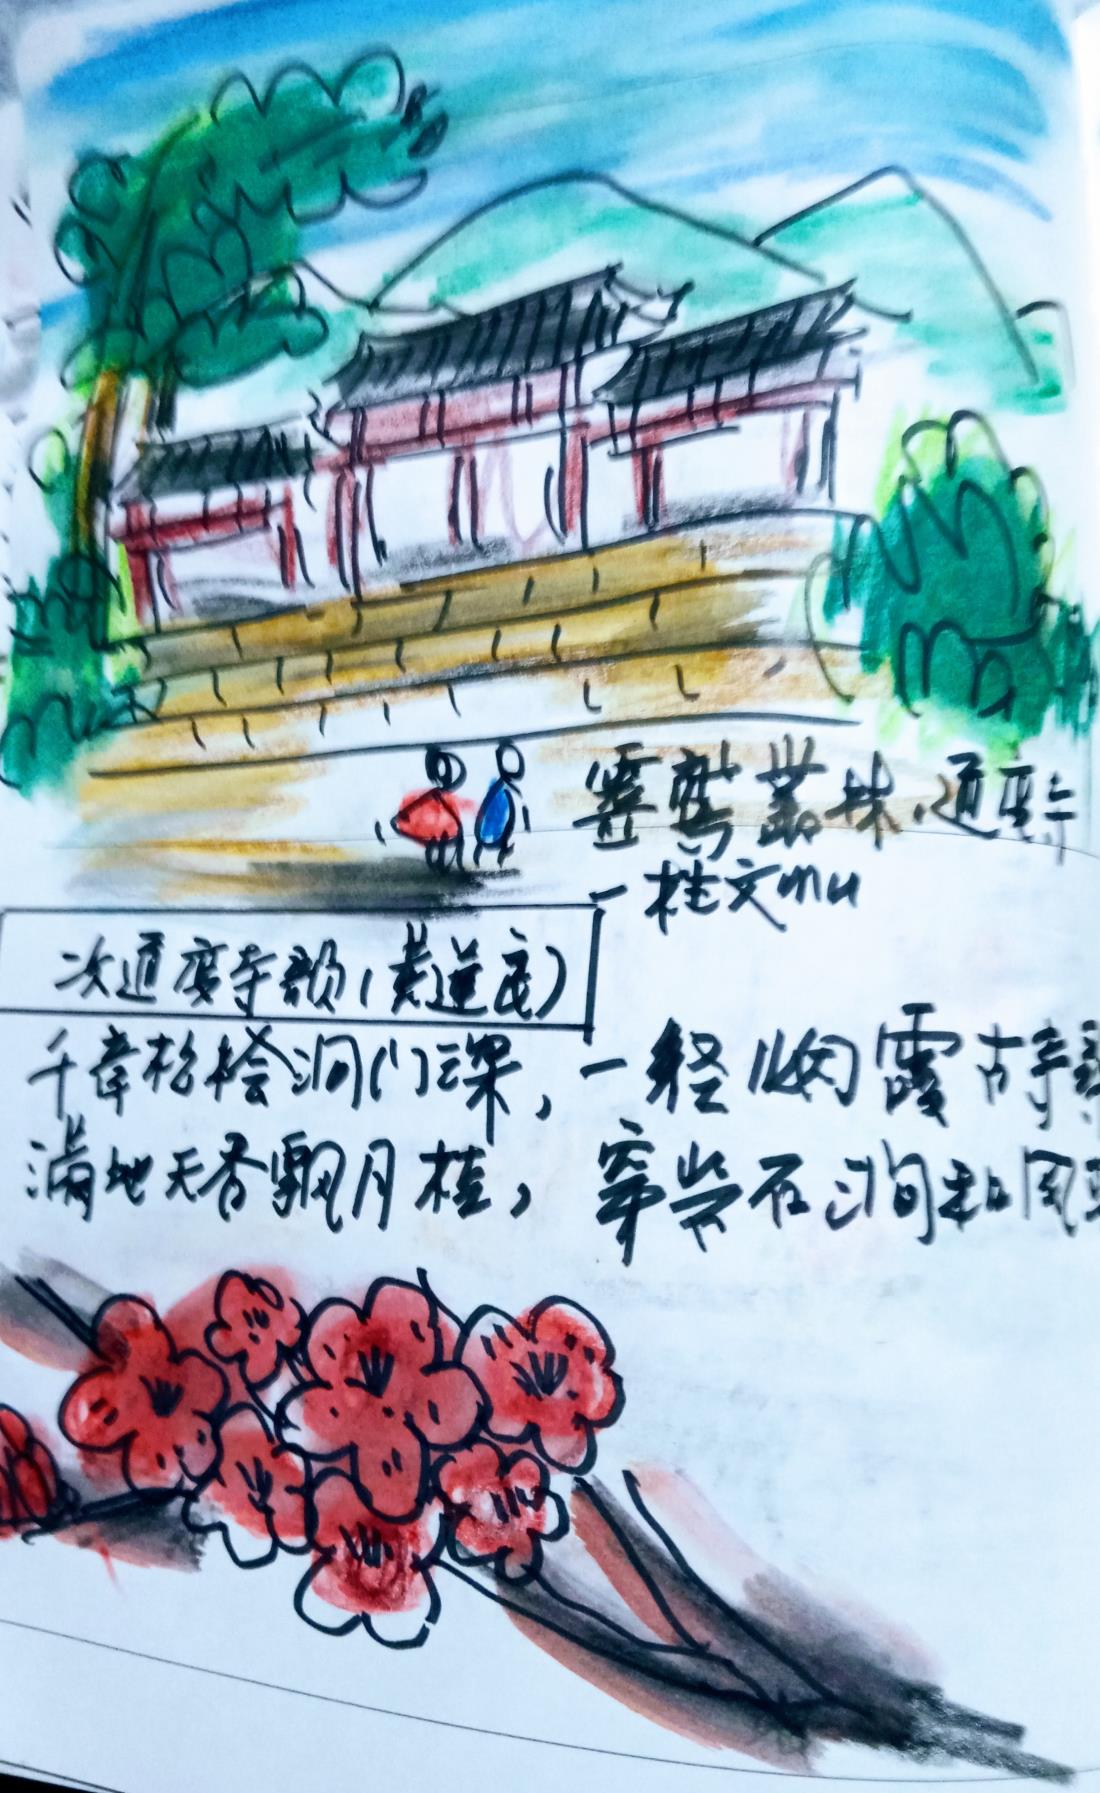 霊鹫叢林,通度寺
一桂文mu
次通度寺韵(黄莲庵)
千章松桧洞门深,一径烟霞古寺
满地天香飘月桂,穿岩石涧和风